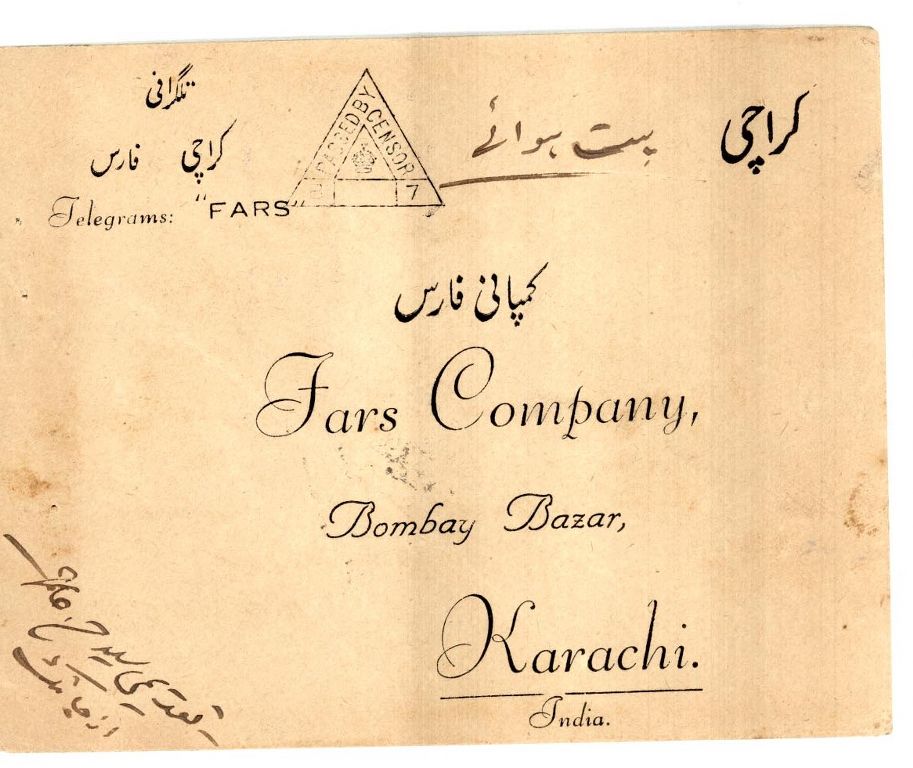 تلگرافی
کراچی فارس
Telegrams: "FARS"
PASSED BY CENSOR
7
پست هوائے
کراچی
کمپانی فارس
Fars Company,
Bombay Bazar,
Karachi.
India.